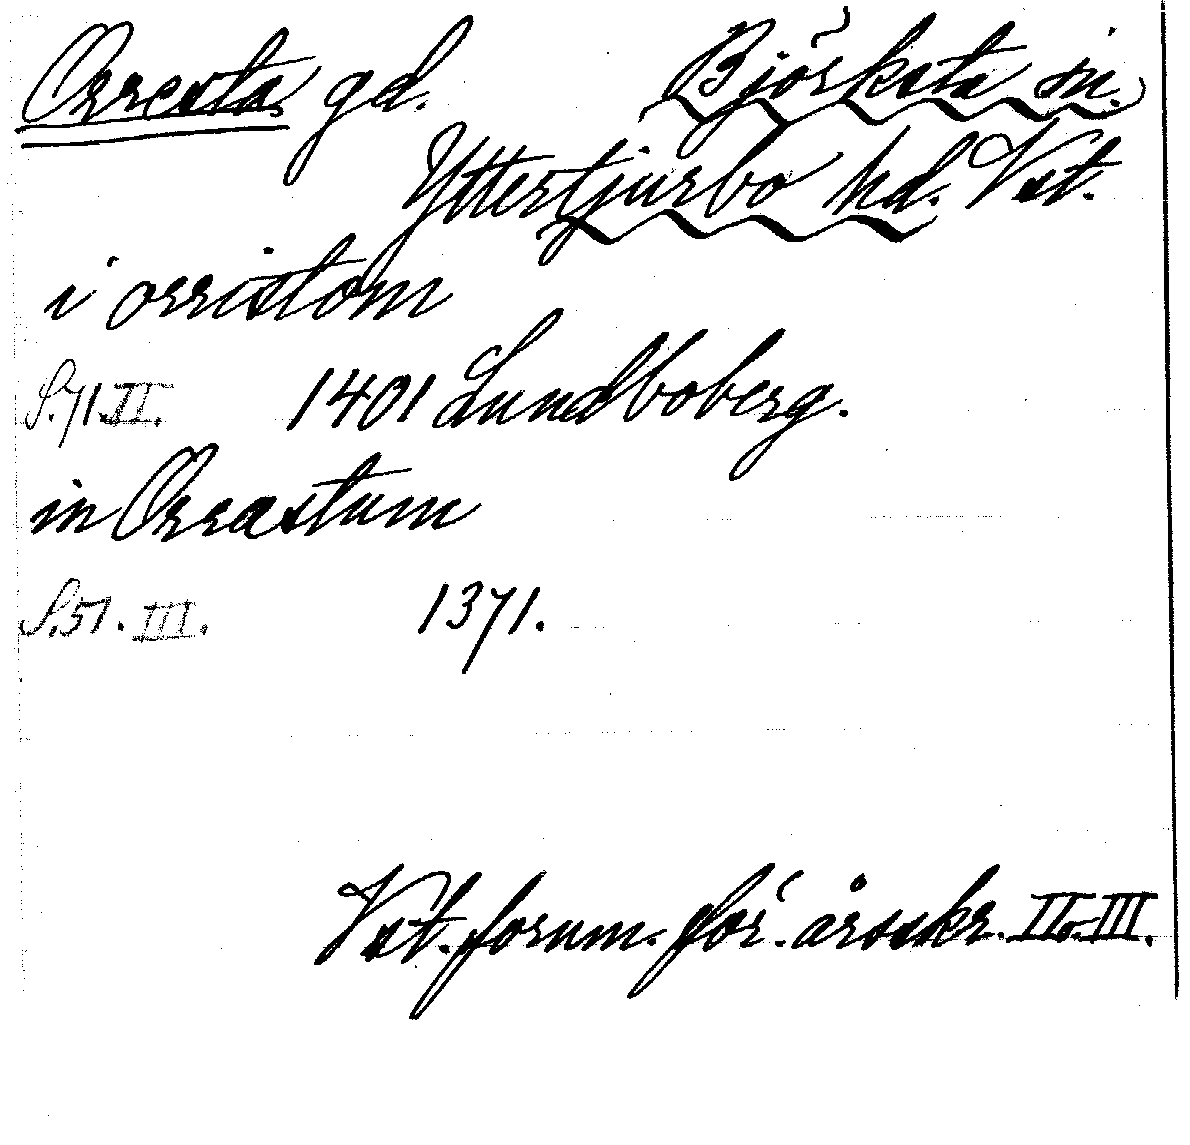 Orresta gd. Björksta sn.
Yttertjurbo hd. Vst.
i orristom
S. 71. II. 1401 Lundboberg.
in Orrastum
S. 51. III. 1371.
Vst. fornm. för. årsskr. II o. III.